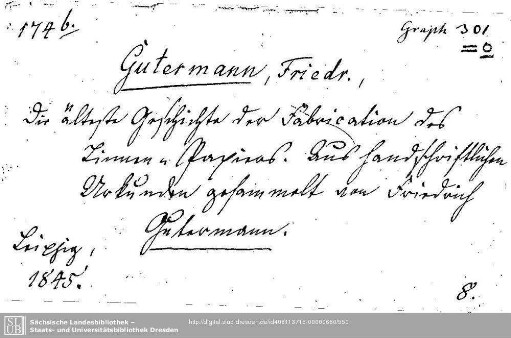 174 b.
Graph 301
= 0
Gutermann, Friedr.,
Die älteste Geschichte der Fabrication des
Linnen u Papiers. Aus handschriftlichen
Urkunden gesammelt von Friedrich
Gutermann.
Leipzig,
1845.
8.
SLUB
Sächsische Landesbibliothek –
Staats- und Universitätsbibliothek Dresden